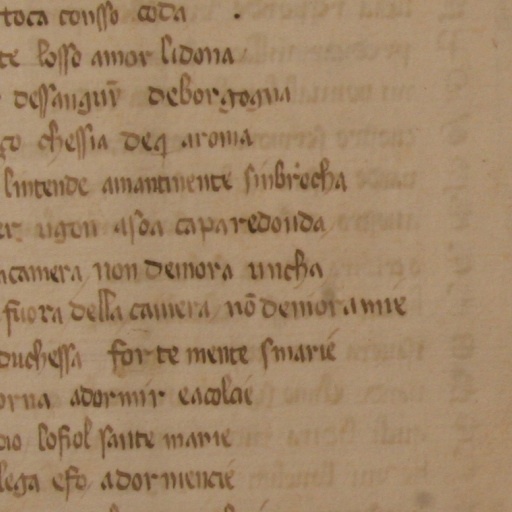 toca consso coda .
te losso amor lidona
dessangur̄ deborgogna
go chessia deq̄ aroma
lintende amantinente sinbrocha
er ugon asoa capa redonda
camera non demora uncha
fuora della camera nō demora mie
duchessa forte mente smarie
orna adormir eacolcie
dio lofiol sante marie
lega efo adormencie